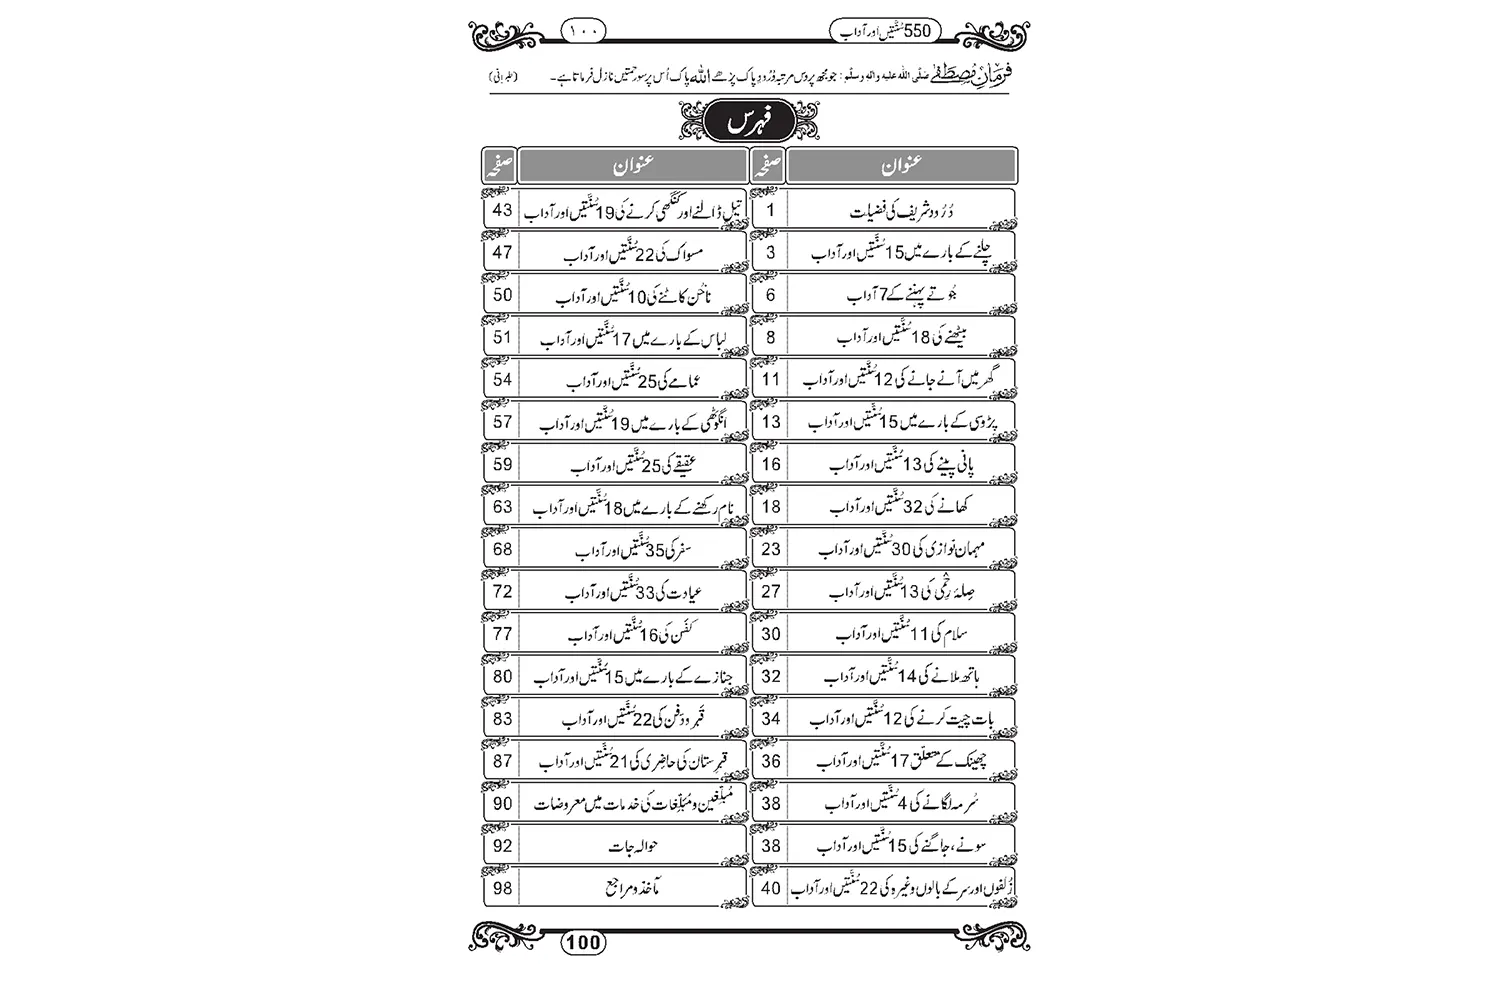 550 سُنَّتیں اور آداب ۱۰۰
فرمانِ مُصطَفٰے صَلَّی اللہ علیہ واٰلہٖ وسلَّم : جو مجھ پر دس مرتبہ دُرُودِ پاک پڑھے اللہ پاک اُس پر سو رحمتیں نازِل فرماتا ہے۔ (طبرانی)
فہرس
عنوان صفحہ عنوان صفحہ
دُرُود شریف کی فضیلت 1 تیل ڈالنے اور کنگھی کرنے کی 19 سُنَّتیں اور آداب 43
چلنے کے بارے میں 15 سُنَّتیں اور آداب 3 مسواک کی 22 سُنَّتیں اور آداب 47
جُوتے پہننے کے 7 آداب 6 ناخُن کاٹنے کی 10 سُنَّتیں اور آداب 50
بیٹھنے کی 18 سُنَّتیں اور آداب 8 لباس کے بارے میں 17 سُنَّتیں اور آداب 51
گھر میں آنے جانے کی 12 سُنَّتیں اور آداب 11 عمامے کی 25 سُنَّتیں اور آداب 54
پڑوسی کے بارے میں 15 سُنَّتیں اور آداب 13 انگوٹھی کے بارے میں 19 سُنَّتیں اور آداب 57
پانی پینے کی 13 سُنَّتیں اور آداب 16 عقیقے کی 25 سُنَّتیں اور آداب 59
کھانے کی 32 سُنَّتیں اور آداب 18 نام رکھنے کے بارے میں 18 سُنَّتیں اور آداب 63
مہمان نوازی کی 30 سُنَّتیں اور آداب 23 سفر کی 35 سُنَّتیں اور آداب 68
صِلۂ رَحمی کی 13 سُنَّتیں اور آداب 27 عیادت کی 33 سُنَّتیں اور آداب 72
سلام کی 11 سُنَّتیں اور آداب 30 کَفَن کی 16 سُنَّتیں اور آداب 77
ہاتھ ملانے کی 14 سُنَّتیں اور آداب 32 جنازے کے بارے میں 15 سُنَّتیں اور آداب 80
بات چیت کرنے کی 12 سُنَّتیں اور آداب 34 قَبر و دَفن کی 22 سُنَّتیں اور آداب 83
چھینک کے متعلّق 17 سُنَّتیں اور آداب 36 قبرِستان کی حاضِری کی 21 سُنَّتیں اور آداب 87
سُرمہ لگانے کی 4 سُنَّتیں اور آداب 38 مُبَلِّغین و مُبَلِّغات کی خدمات میں معروضات 90
سونے، جاگنے کی 15 سُنَّتیں اور آداب 38 حوالہ جات 92
زُلفوں اور سر کے بالوں وغیرہ کی 22 سُنَّتیں اور آداب 40 مآخذ و مراجع 98
100